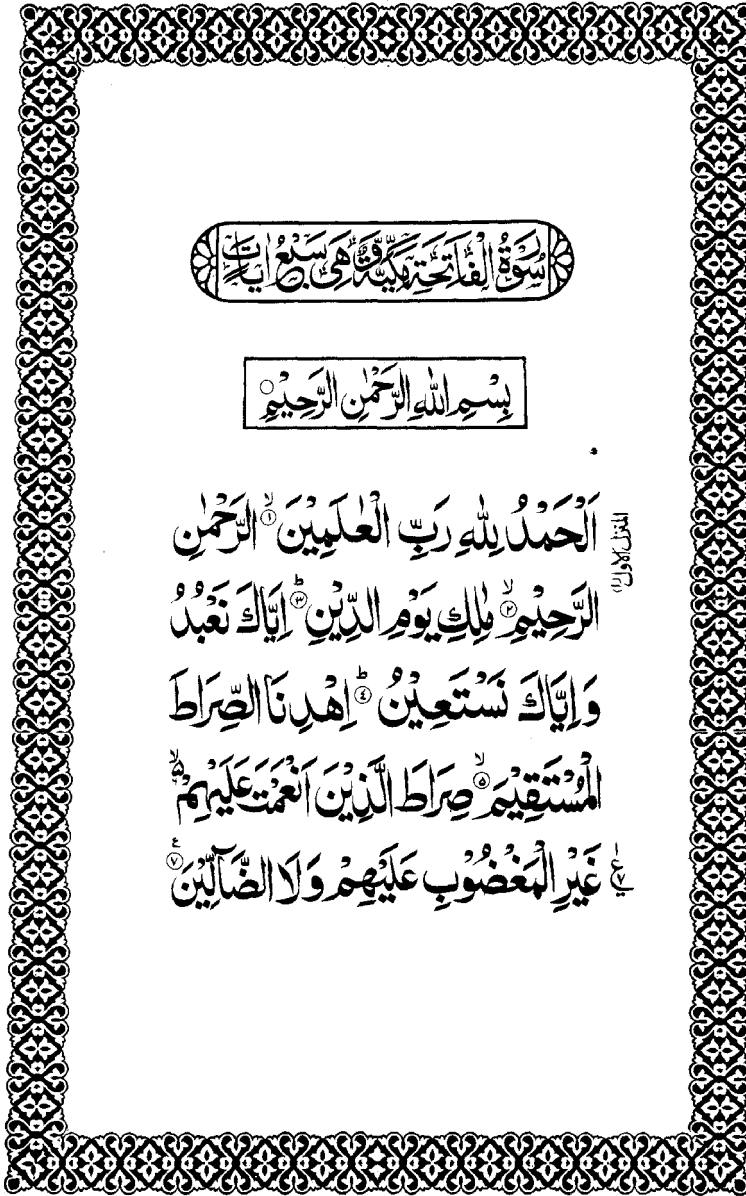 سُوْرَةُ الْفَاتِحَةِ مَكِّيَّةٌ وَّهِيَ سَبْعُ اٰيَاتٍ
بِسْمِ اللّٰهِ الرَّحْمٰنِ الرَّحِيْمِ
اَلْحَمْدُ لِلّٰهِ رَبِّ الْعٰلَمِيْنَ ۙ﴿۱﴾ الرَّحْمٰنِ
المنزل الاول ﴿۱﴾
الرَّحِيْمِ ۙ﴿۲﴾ مٰلِكِ يَوْمِ الدِّيْنِ ؕ﴿۳﴾ اِيَّاكَ نَعْبُدُ
وَاِيَّاكَ نَسْتَعِيْنُ ؕ﴿٤﴾ اِهْدِنَا الصِّرَاطَ
الْمُسْتَقِيْمَ ۙ﴿۵﴾ صِرَاطَ الَّذِيْنَ اَنْعَمْتَ عَلَيْهِمْ ۙ
غَيْرِ الْمَغْضُوْبِ عَلَيْهِمْ وَلَا الضَّآلِّيْنَ ﴿۷﴾